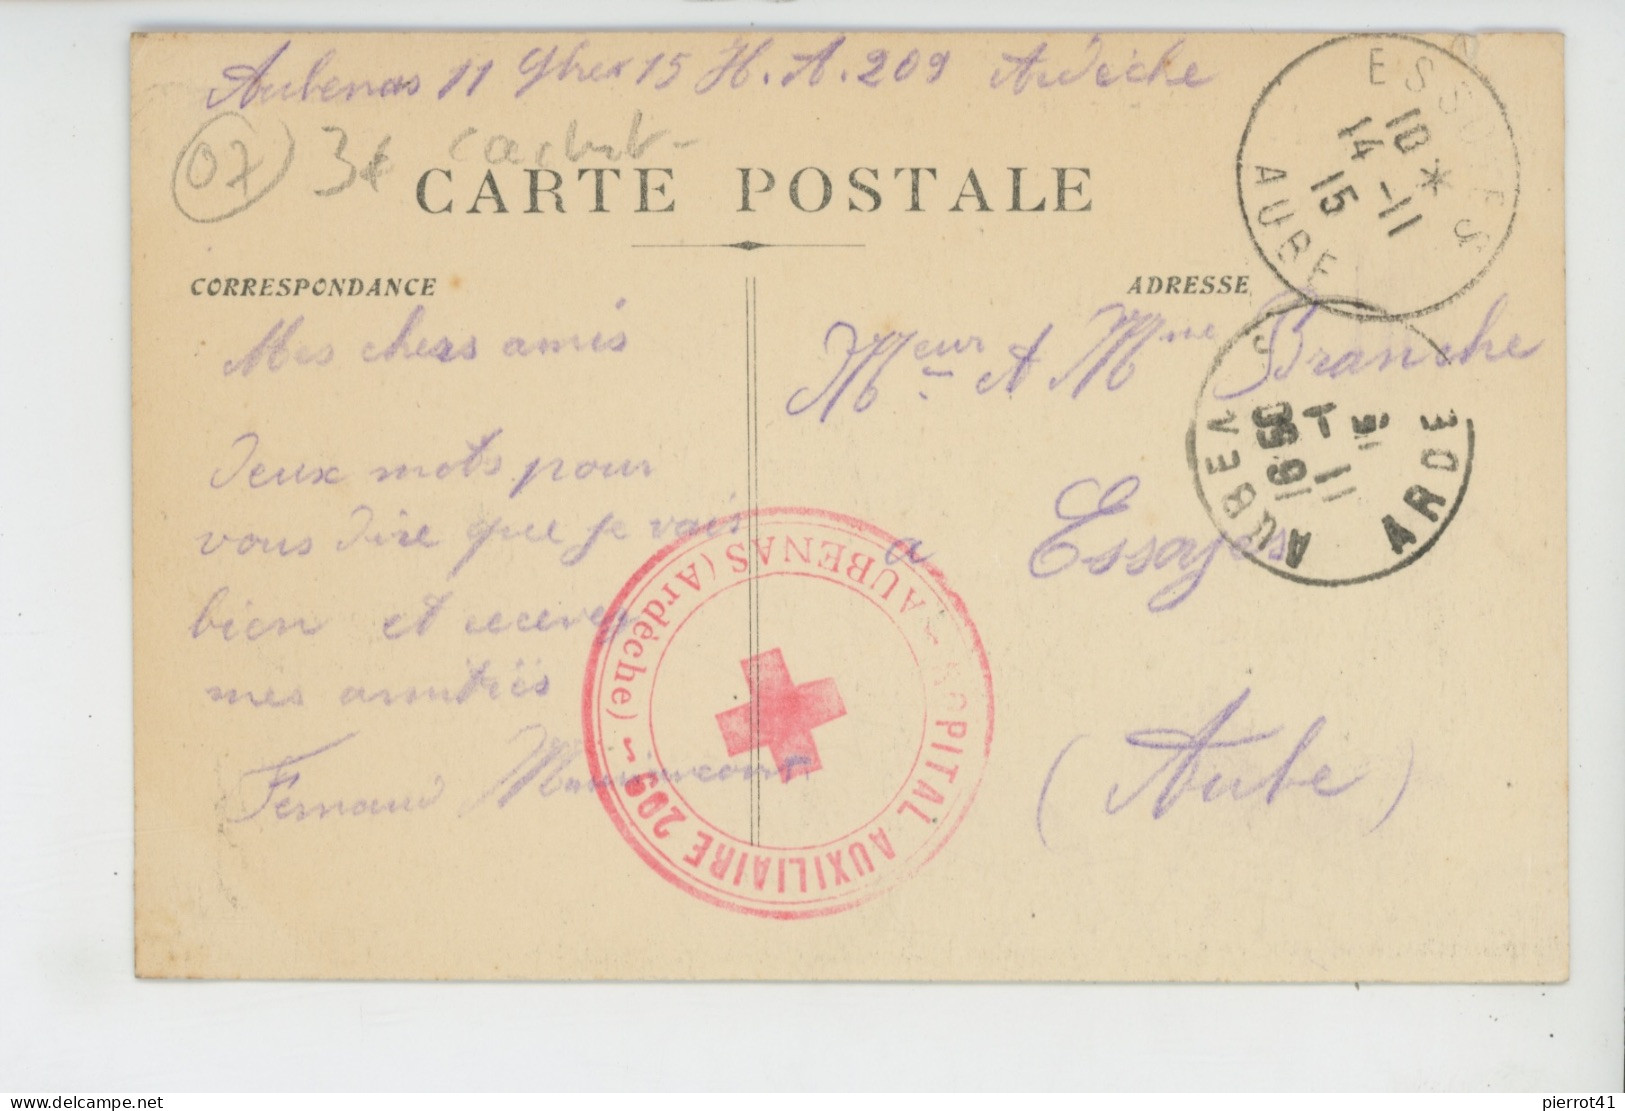 Aubenas 11 9brex 15 H. A. 209 Ardèche
07 3€ cachet
CARTE POSTALE
CORRESPONDANCE
ADRESSE
Mes chers amis
Deux mots pour
vous dire que je vais
bien et recevez
mes amitiés
Fernand
Meur et Mme Branche
a Essoyes
(Aube)
ESSOYES
10 *
14 -11
15
AUBE
AUBENAS
16 50
5 - 11
ARDE
HOPITAL AUXILIAIRE 209 ~ AUBENAS (Ardèche) ~
pierrot41